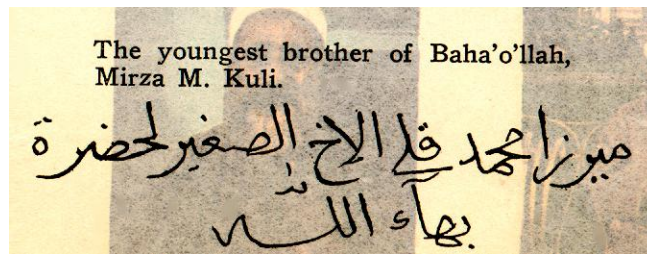 The youngest brother of Baha’o’llah,
Mirza M. Kuli.
ميرزا محمد قلي الاخ الصغير لحضرة
بهآء الله